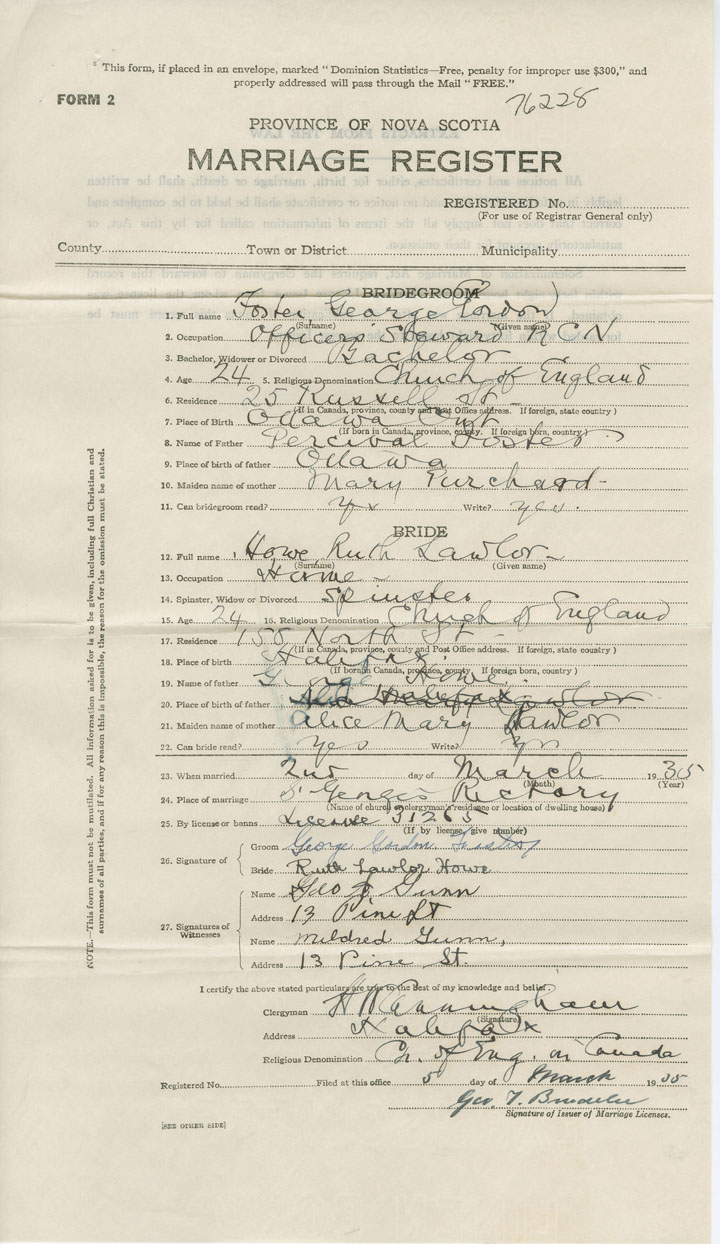 ° This form, if placed in an envelope, marked "Dominion Statistics—Free, penalty for improper use $300," and
properly addressed will pass through the Mail "FREE."
FORM 2
76228
PROVINCE OF NOVA SCOTIA
MARRIAGE REGISTER
REGISTERED No.
(For use of Registrar General only)
County Town or District Municipality
BRIDEGROOM
1. Full name Foster George Gordon
(Surname) (Given name)
2. Occupation Officers' Steward RCN
3. Bachelor, Widower or Divorced Bachelor
4. Age 24 5. Religious Denomination Church of England
6. Residence 25 Russell St
(If in Canada, province, county and Post Office address. If foreign, state country)
7. Place of Birth Ottawa Ont
(If born in Canada, province, county. If foreign born, country)
8. Name of Father Percival Foster
9. Place of birth of father Ottawa
10. Maiden name of mother Mary
11. Can bridegroom read? Yes Write? yes.
BRIDE
12. Full name Howe Ruth Lawlor
(Surname) (Given name)
13. Occupation Home
14. Spinster, Widow or Divorced Spinster
15. Age 24 16. Religious Denomination Chuch of England
17. Residence 155 North St
(If in Canada, province, county and Post Office address. If foreign, state country)
18. Place of birth Halifax
(If born in Canada, province, county If foreign born, country)
19. Name of father George Howe.
20. Place of birth of father Halifax
21. Maiden name of mother Alice Mary Lawlor
22. Can bride read? Yes Write? Yes
23. When married 2nd day of March 1935
(Month) (Year)
24. Place of marriage St Georges Rectory
(Name of church clergyman's residence or location of dwelling house)
25. By license or banns License 31265
(If by license, give number)
26. Signature of
Groom George Gordon Foster
Bride Ruth Lawlor Howe
27. Signatures of Witnesses
Name Geo Gunn
Address 13 Pine St
Name Mildred Gunn,
Address 13 Pine St.
I certify the above stated particulars are true to the best of my knowledge and belief.
Clergyman H W Cunningham
(Signature)
Address Halifax
Religious Denomination Ch. of Eng. in Canada
Registered No. Filed at this office 5 day of March 1935
Geo. T.
Signature of Issuer of Marriage Licenses.
[SEE OTHER SIDE]
NOTE.—This form must not be mutilated. All information asked for is to be given, including full Christian and
surnames of all parties, and if for any reason this is impossible, the reason for the omission must be stated.